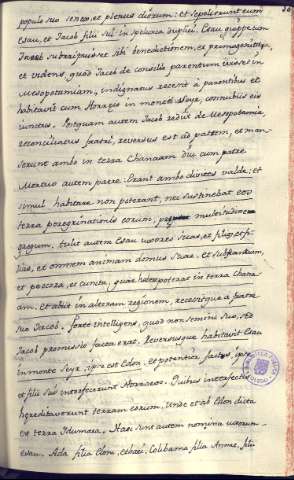 populo suo senex, et plenus dierum: et sepelierunt eum
Esau, et Jacob filii sui in spelunca duplici. Esau
Jacob subripuisset sibi benedictionem, et primogenita,
et videns, quod Jacob de consilio parentum ivisset in
Mesopotamiam, indignatus recessit a parentibus et
habitavit cum Horraeis in monte Seyr, connubiis eis
iunctus. Postquam autem Jacob rediit de Mesopotamia
reconciliatus fratri, reversus est ad patrem, et man-
serunt ambo in terra Chanaam diu cum patre
Mortuo autem patre. Erant ambo divites valde, et
simul habitare non poterant, nec sustinebat eos
terra peregrinationis eorum, multitudine
gregum, tulit autem Esau uxores suas, et filios, et fi-
lias, et omnem animam domus suae, et substantiam,
et pecora, et cuncta, quae habere poterat in terra Chana
am, et abiit in alteram regionem, recessitque a fratre
suo Jacob. Forte intelligens, quod non semini suo, sed
Jacob promissio facta erat. Reversusque habitavit Esau
in monte Seyr, ipse est Edon, et potentior factus, ipse
et filii sui interfecerunt Horraeos. Quibus interfectis
hereditaverunt terram eorum, unde et ab Edon dicta
est terra Idumaea. Haec sunt autem nomina uxorum
Esau. Ada filia Elon, ethaei, Colibama filia Annae, filii